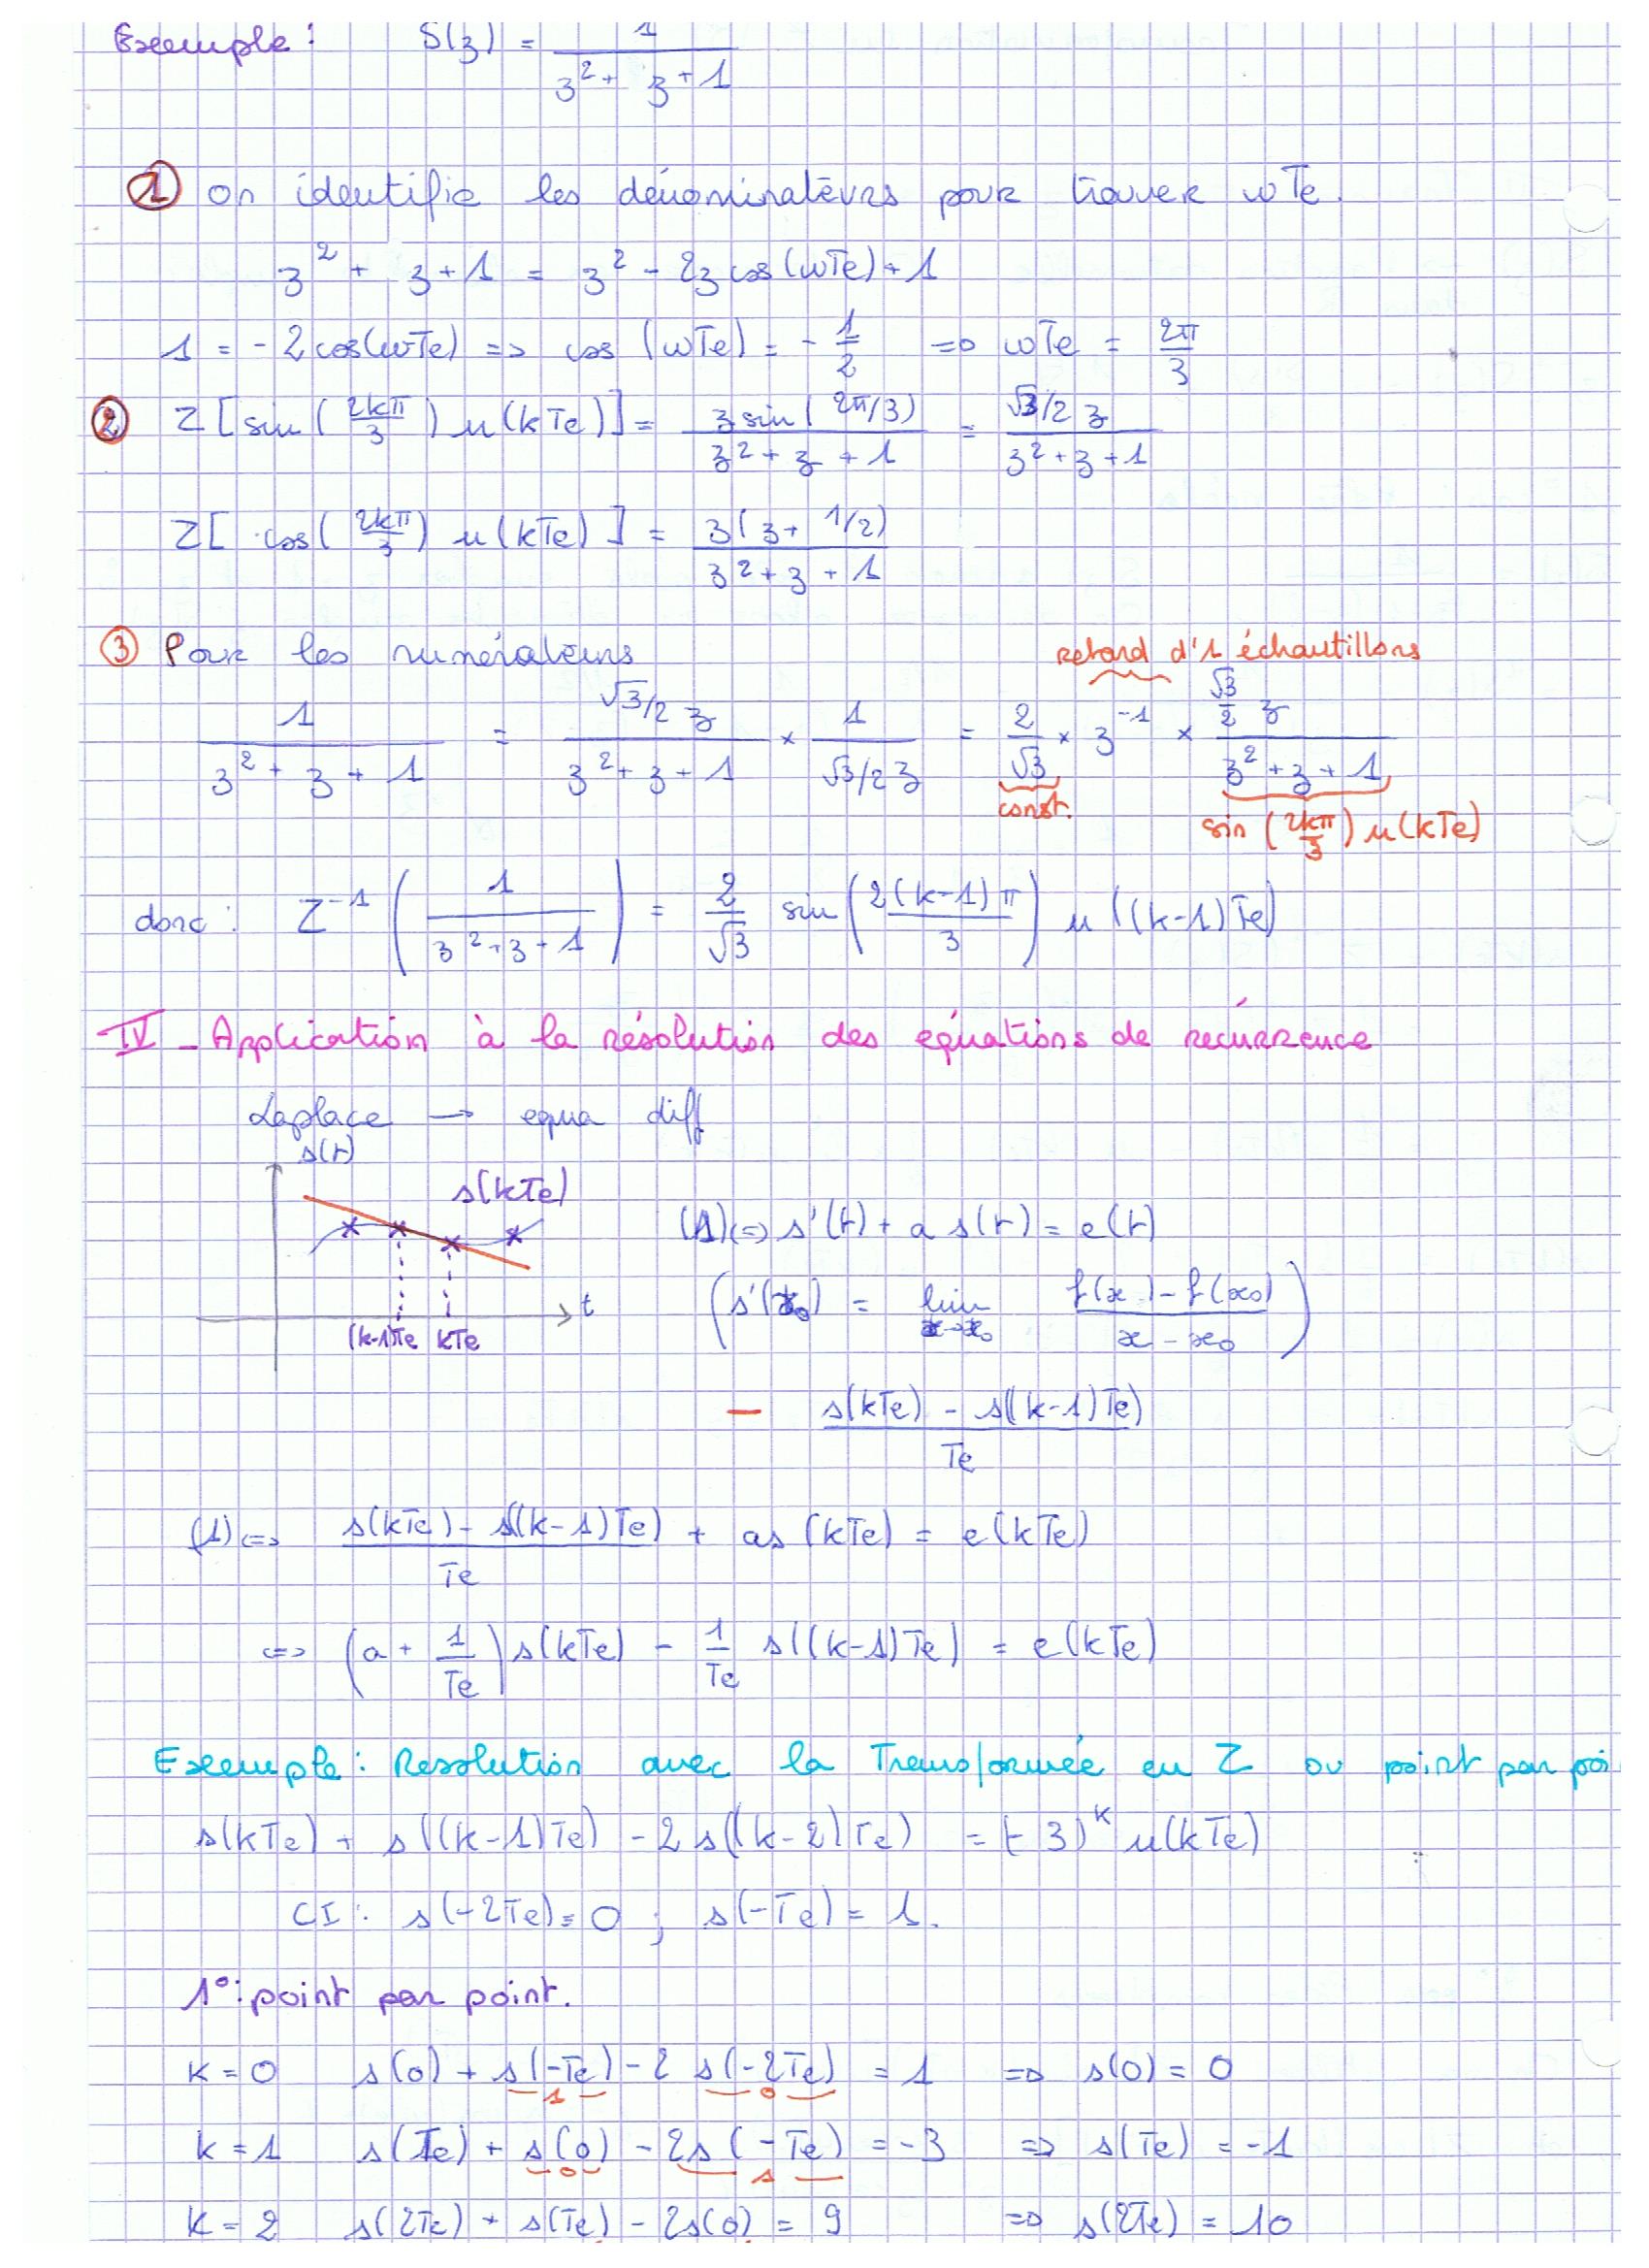 Exemple : S(z) = 1 / (z² + z + 1)
① on identifie les dénominateurs pour trouver ωTe.
z² + z + 1 = z² - 2z cos(ωTe) + 1
1 = -2cos(ωTe) => cos(ωTe) = -1/2 => ωTe = 2π/3
② Z[sin(2kπ/3) u(kTe)] = z sin(2π/3) / (z² + z + 1) = √3/2 z / (z² + z + 1)
Z[cos(2kπ/3) u(kTe)] = z(z + 1/2) / (z² + z + 1)
③ Pour les numérateurs
retard d'1 échantillons
1 / (z² + z + 1) = √3/2 z / (z² + z + 1) × 1 / (√3/2 z) = 2/√3 × z⁻¹ × (√3/2) z / (z² + z + 1)
const. sin(2kπ/3) u(kTe)
donc : Z⁻¹(1 / (z² + z + 1)) = 2/√3 sin(2(k-1)π / 3) u((k-1)Te)
IV - Application à la résolution des équations de récurrence
Laplace → equa diff
s(t)
s(kTe)
(1) <=> s'(t) + a s(t) = e(t)
t
(k-1)Te kTe
(s'(x₀) = lim x→x₀ (f(x) - f(x₀)) / (x - x₀))
- (s(kTe) - s((k-1)Te)) / Te
(1) <=> (s(kTe) - s((k-1)Te)) / Te + as(kTe) = e(kTe)
<=> (a + 1/Te) s(kTe) - 1/Te s((k-1)Te) = e(kTe)
Exemple : Resolution avec la Transformée en Z ou point par poi
s(kTe) + s((k-1)Te) - 2s((k-2)Te) = (-3)^k u(kTe)
CI : s(-2Te) = 0 ; s(-Te) = 1.
1° : point par point.
k = 0 s(0) + s(-Te) - 2 s(-2Te) = 1 => s(0) = 0
1 0
k = 1 s(Te) + s(0) - 2s(-Te) = -3 => s(Te) = -1
0 1
k = 2 s(2Te) + s(Te) - 2s(0) = 9 => s(2Te) = 10